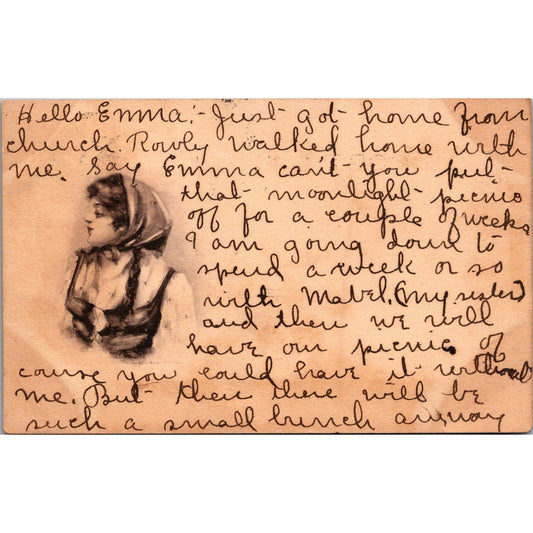 Hello Emma:- Just got home from
church. Rowly walked home with
me. Say Emma can't you put
that moonlight picnic
off for a couple of weeks
I am going down to
spend a week or so
with Mabel. (my sister)
and then we will
have our picnic. of
course you could have it without
me. But then there will be
such a small bunch anyway